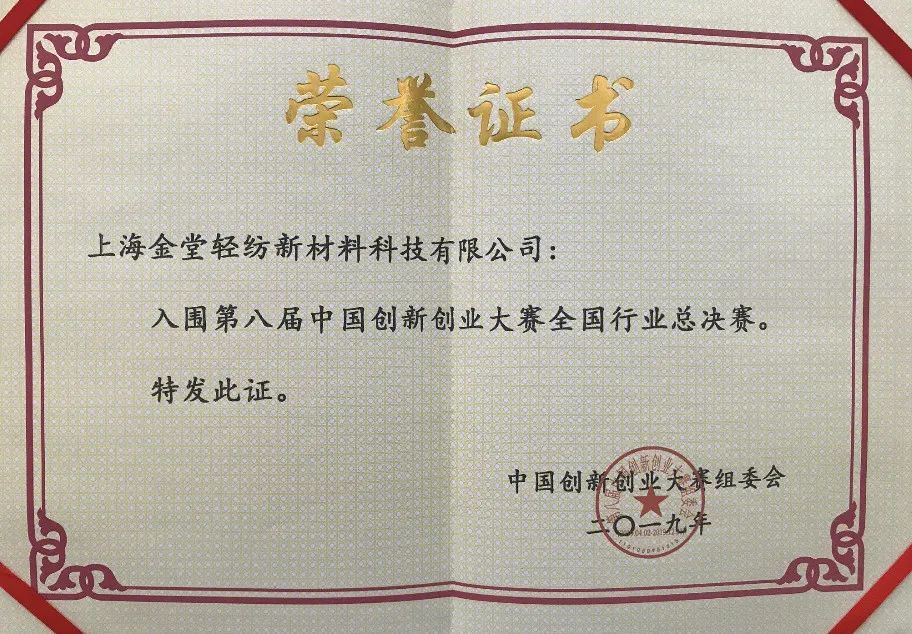 荣誉证书
上海金堂轻纺新材料科技有限公司：
入围第八届中国创新创业大赛全国行业总决赛。
特发此证。
中国创新创业大赛组委会
二〇一九年